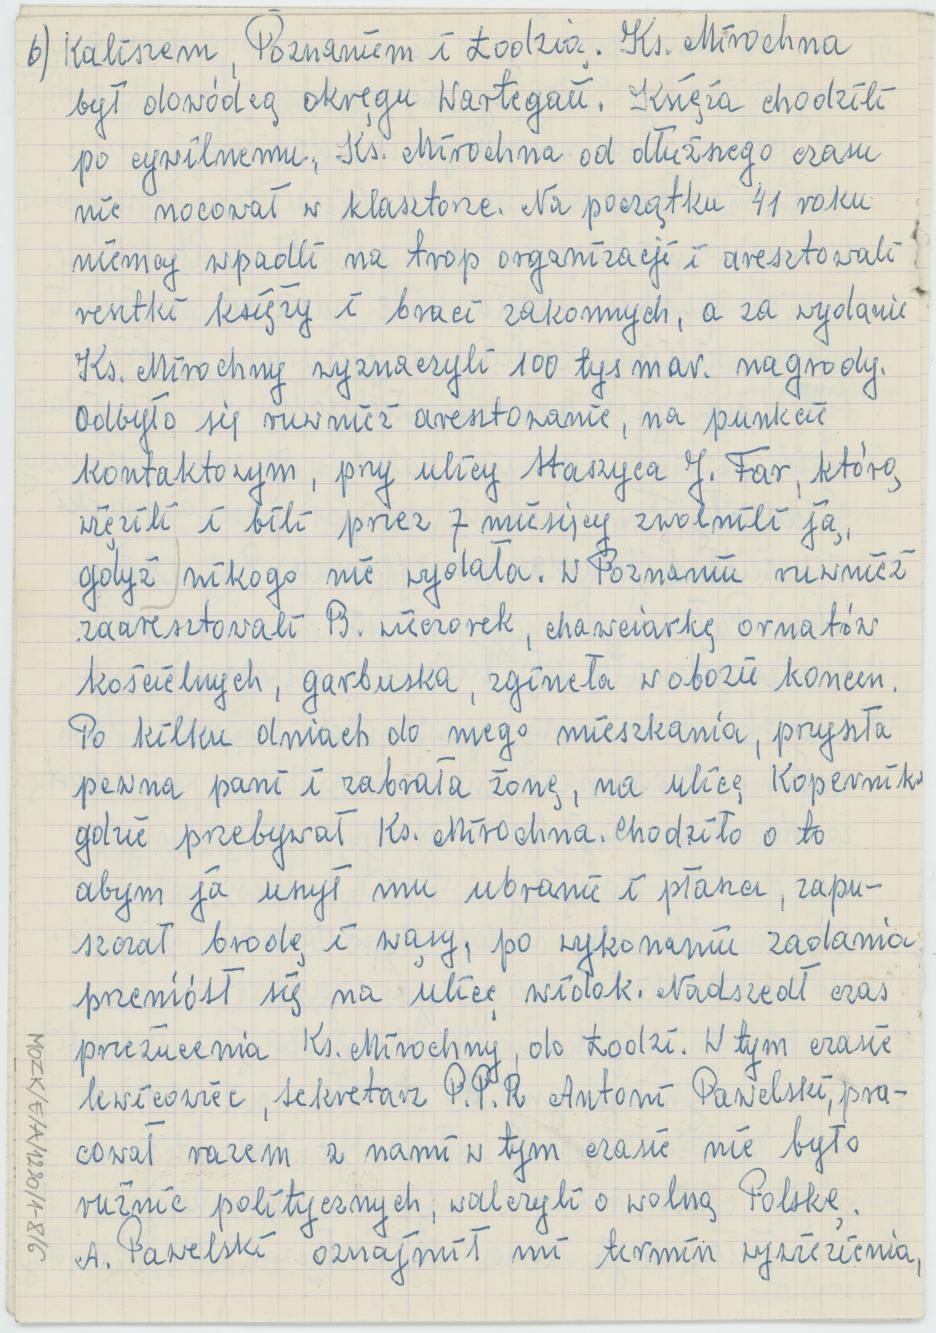 6) Kaliszem, Poznaniem i Łodzią. Ks. Mirochna
był dowódcą okręgu Wartegau. Księża chodzili
po cywilnemu, Ks. Mirochna od dłuższego czasu
nie nocował w klasztorze. Na początku 41 roku
niemcy wpadli na trop organizacji i aresztowali
resztki księży i braci zakonnych, a za wydanie
Ks. Mirochny wyznaczyli 100 tys mar. nagrody.
Odbyło się ruwnież aresztowanie, na punkcie
kontaktowym, pry ulicy Staszyca J. Far, którą
więzili i bili przez 7 miesięcy zwolnili ją,
gdyż nikogo nie wydała. W Poznaniu ruwnież
zaaresztowali B. wieczorek, chawciarkę ornatów
kościelnych, garbuska, zgineła w obozie koncen.
Po kilku dniach do mego mieszkania, pryszła
pewna pani i zabrała żonę, na ulicę Kopernika
gdzie przebywał Ks. Mirochna. Chodziło o to
abym ja uszył mu ubranie i płaszcz, zapu-
szczał brodę i wąsy, po wykonaniu zadania
przeniósł się na ulicę widok. Nadszedł czas
przezucenia Ks. Mirochny, do Łodzi. W tym czasie
lewicowiec, sekretarz P.P.R Antoni Pawelski, pra-
cował razem z nami w tym czasie nie było
rużnic politycznych, walczyli o wolną Polskę.
A. Pawelski oznajmił mi termin wywiezienia,
MOZK/E/A/1220/1-8/6